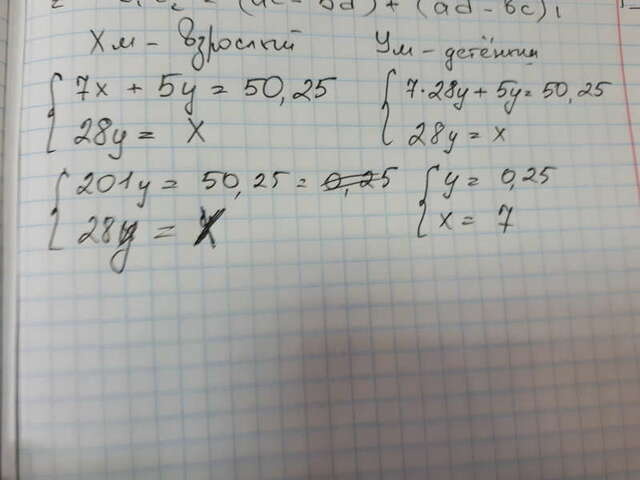 = (ac - bd) + (ad - bc) i
X м - взрослый
Ум - детёныш
7x + 5y = 50,25
28y = X
7·28y + 5y = 50,25
28y = x
201y = 50,25 = 0,25
28y = X
y = 0,25
x = 7